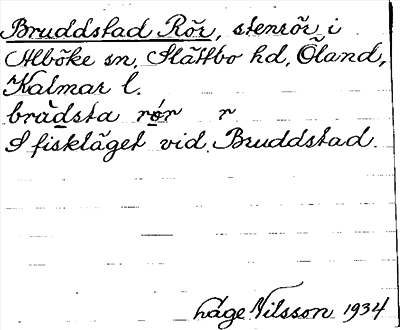 Bruddstad Rör, stenrör i
Alböke sn, Slättbo hd, Öland,
Kalmar l.
brùdsta rór r
I fiskläget vid Bruddstad.
Håge Nilsson 1934